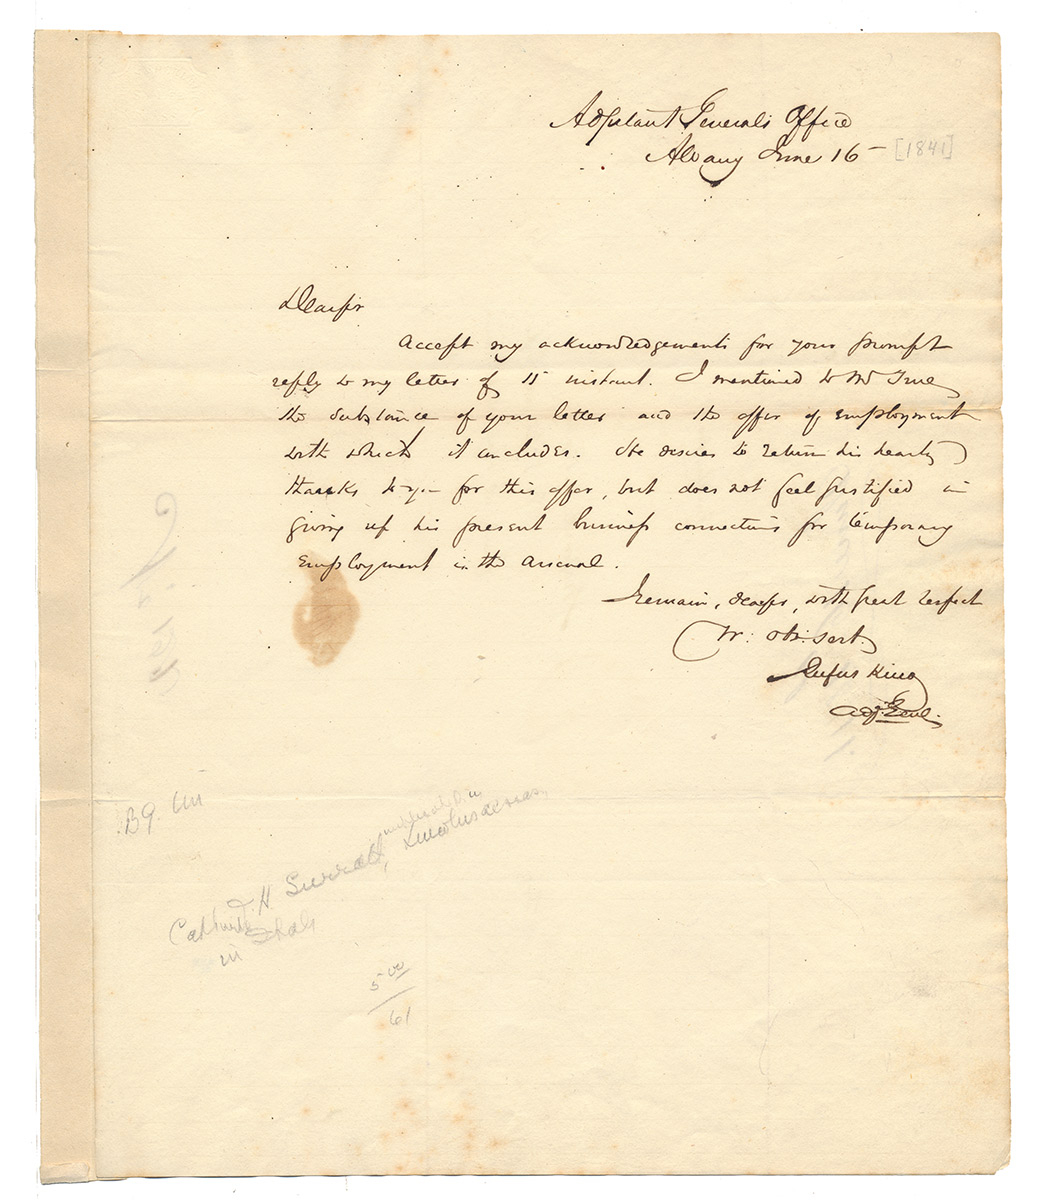 Adjutant Generals Office
Albany June 16 - [1841]
Dear sir
Accept my acknowledgements for your prompt
reply to my letter of 11 instant. I mentioned to Mr
the substance of your letter and the offer of employment
with which it concludes. He desires to return his hearty
thanks to you for this offer, but does not feel justified in
giving up his present business connections for temporary
employment in the Arsenal.
I remain, dear sir, with great respect
Yr: obt: servt.
Rufus King
Adjt Genl.
B.G. Un
implicated in
Captured J. H Surratt, Lincolns
in
5 00
61